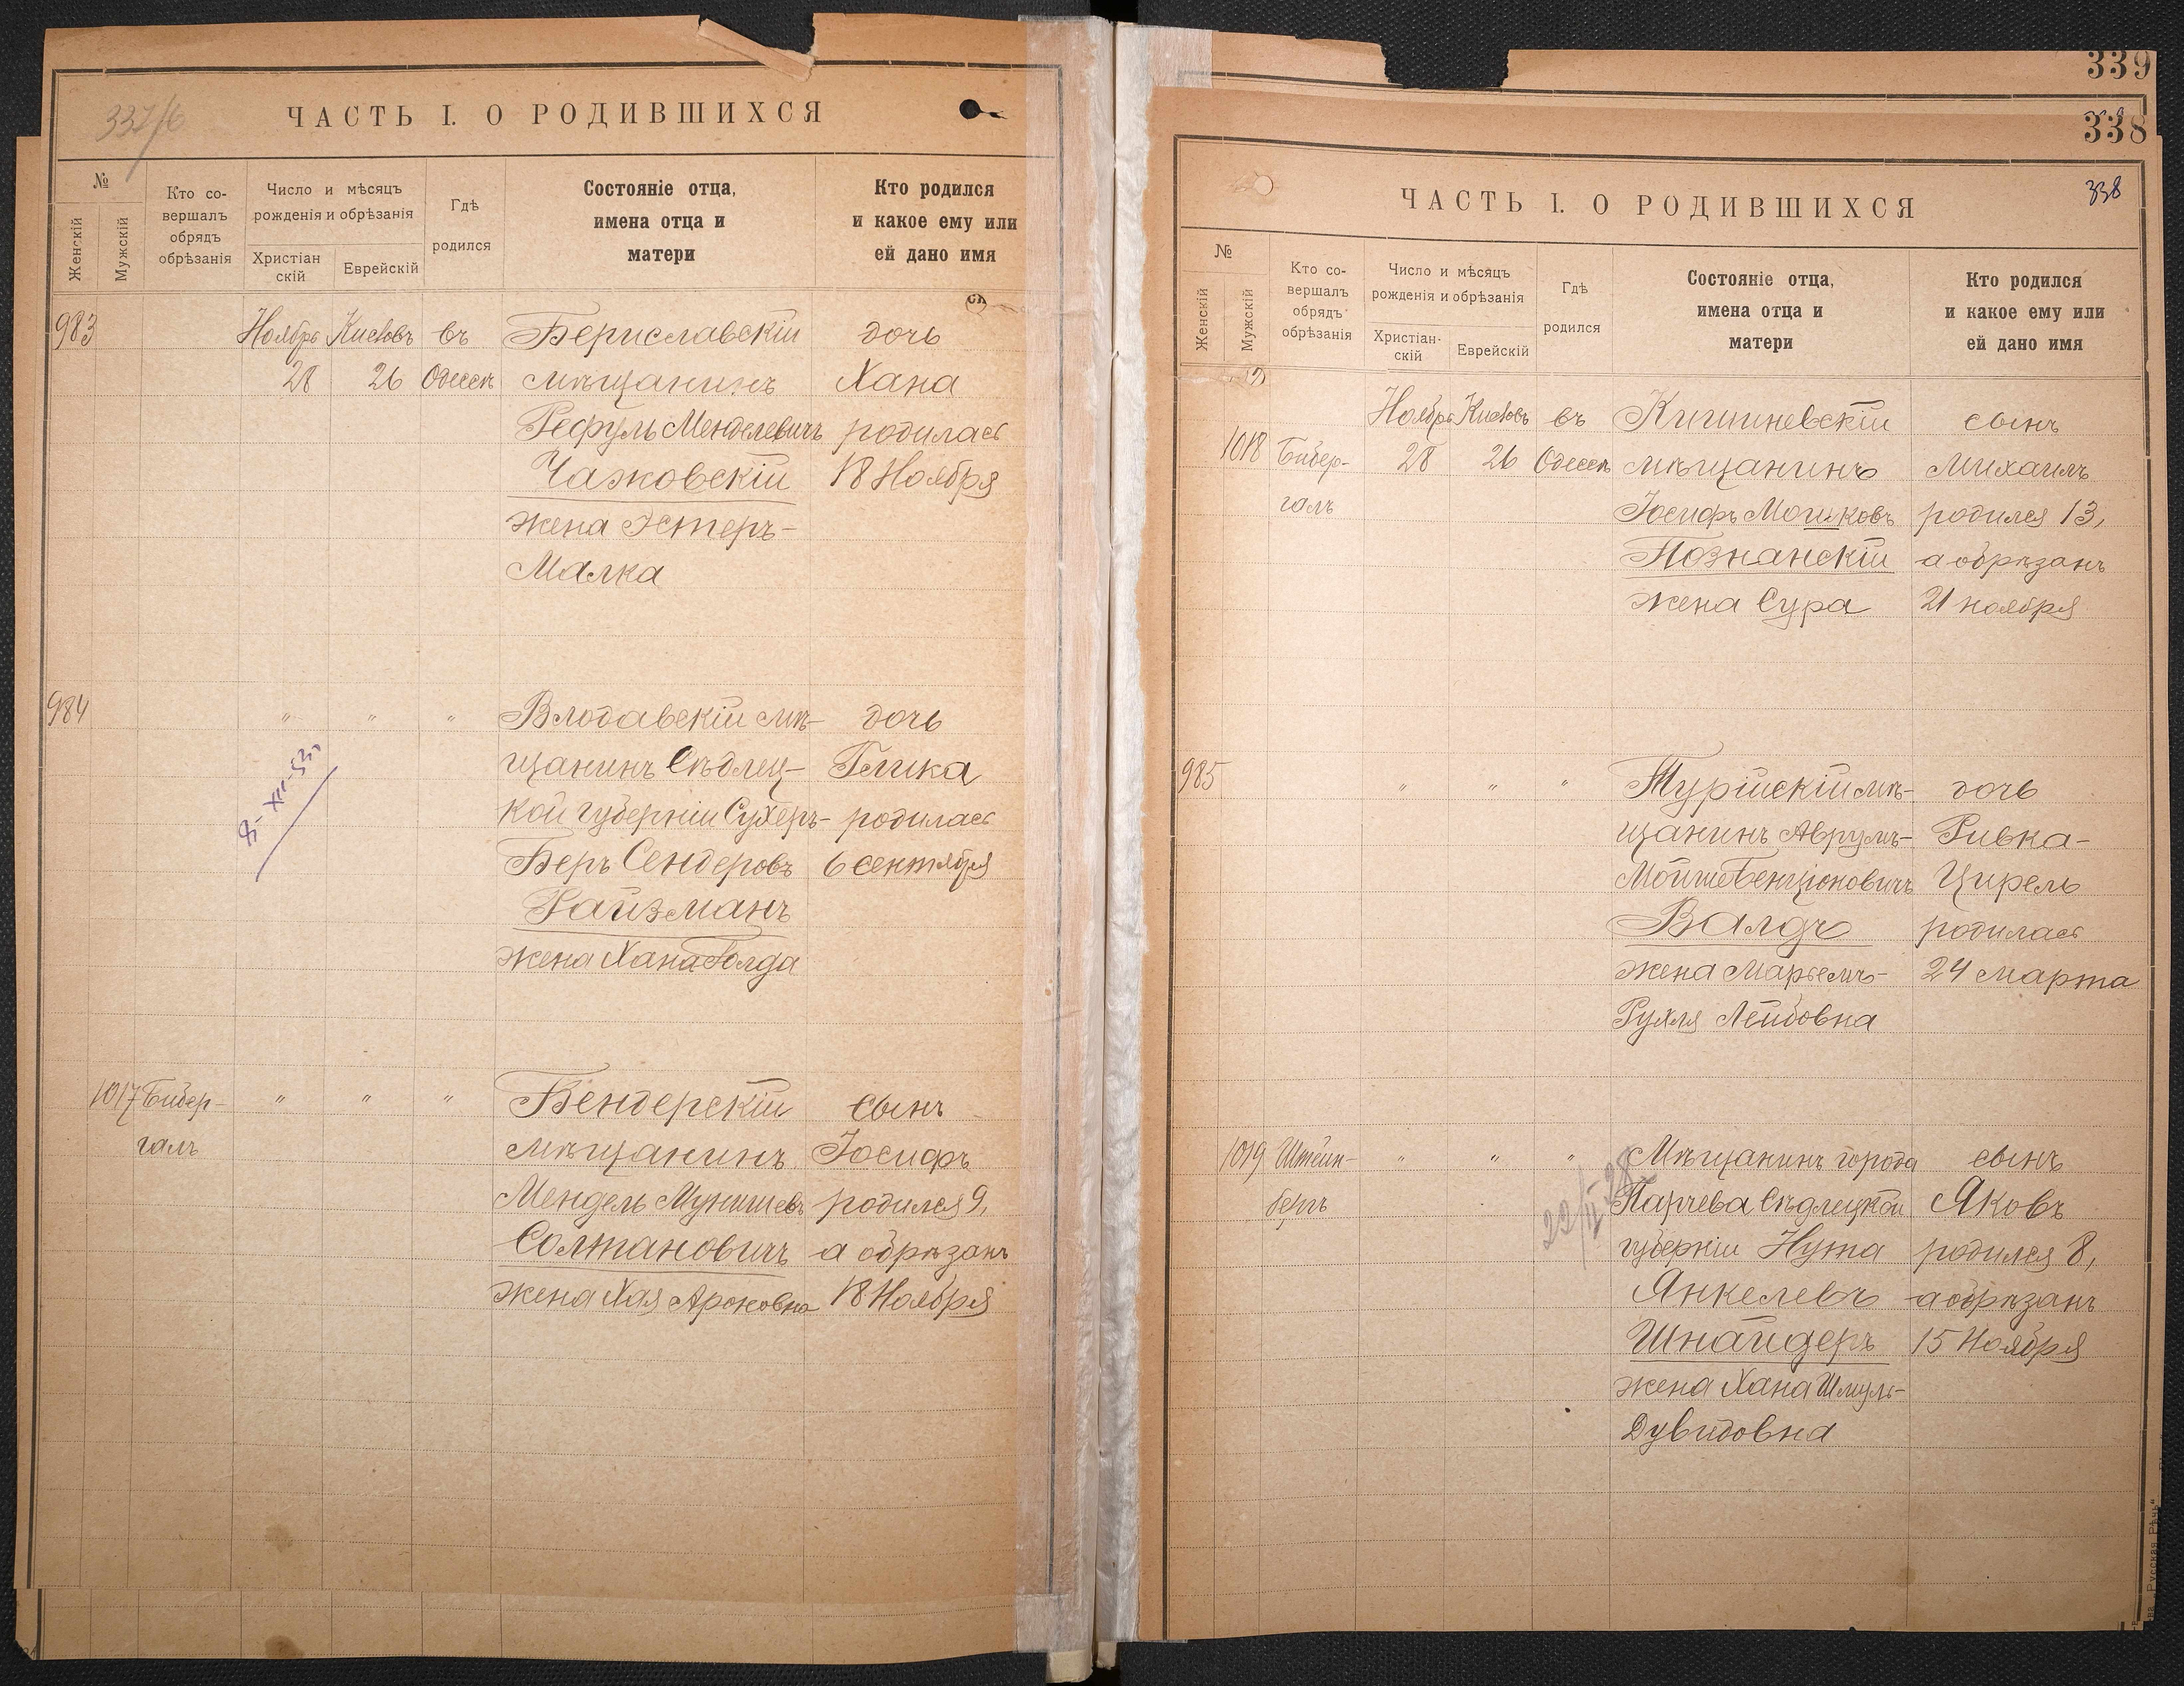 337/б
ЧАСТЬ I. О РОДИВШИХСЯ
№
Женскій
Мужскій
Кто со-
вершалъ
обрядъ
обрѣзанія
Число и мѣсяцъ
рожденія и обрѣзанія
Христіан
скій
Еврейскій
Гдѣ
родился
Состояніе отца,
имена отца и
матери
Кто родился
и какое ему или
ей дано имя
983 Ноябрь Кислевъ въ Бериславскій дочь
28 26 Одессѣ мѣщанинъ Хана
Рефуль Менделевичъ родилась
Чажовскій 18 Ноября
жена Эстеръ-
Малка
984 " " " Влодавскій мѣ- дочь
щанинъ Сѣдлец- Глика
кой губерніи Сухеръ- родилась
Беръ Сендеровъ 6 сентября
Райзманъ
жена Хана Голда
1017 Бибер- " " " Бендерскій сынъ
галъ мѣщанинъ Іосифъ
Мендель Мунишевъ родился 9,
Солтановичъ а обрѣзанъ
жена Хая Ароновна 18 Ноября
339
338
338
ЧАСТЬ I. О РОДИВШИХСЯ
№
Женскій
Мужскій
Кто со-
вершалъ
обрядъ
обрѣзанія
Число и мѣсяцъ
рожденія и обрѣзанія
Христіан-
скій
Еврейскій
Гдѣ
родился
Состояніе отца,
имена отца и
матери
Кто родился
и какое ему или
ей дано имя
Ноябрь Кислевъ въ Кишиневскій сынъ
1018 Бибер- 28 26 Одессѣ мѣщанинъ Михаилъ
галъ Іосифъ Мошковъ родился 13,
Познанскій а обрѣзанъ
жена Сура 21 ноября
985 " " " Турійскій мѣ- дочь
щанинъ Аврумъ- Ривка-
Мойше Бенціоновичъ Цирель
Валдъ родилась
жена Марьемъ- 24 марта
Рухля Лейбовна
1019 Штейн- " " " Мѣщанинъ города сынъ
бергъ Парчева Сѣдлецкой Яковъ
губерніи Нута родился 8,
Янкелевъ а обрѣзанъ
Шнайдеръ 15 Ноября
жена Хана Шмуль-
Дувидовна